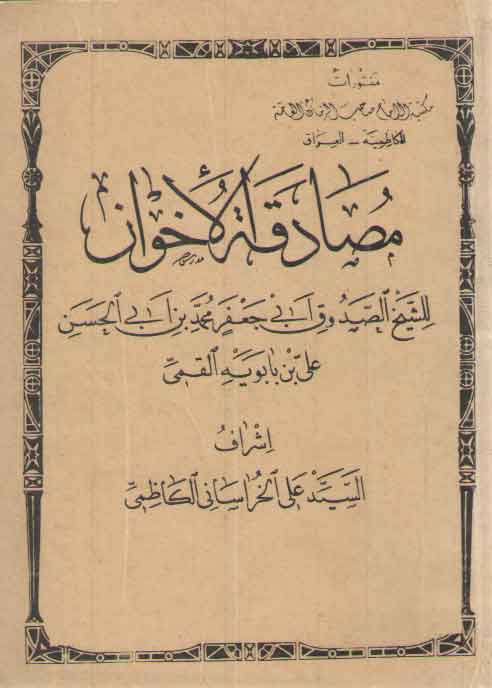 منشورات
مكتبة الامام صاحب الزمان العامة
الكاظمية - العراق
مُصَادَقَة الأُخْوَان
للشيخ الصَّدُوق أَبي جَعْفَر مُحَمَّد بن أَبي الحَسَن
عَلي بْن بابوَيه القمِيّ
إشرَافُ
السَيِّد عَلي الخُراسَاني الكَاظمِيّ